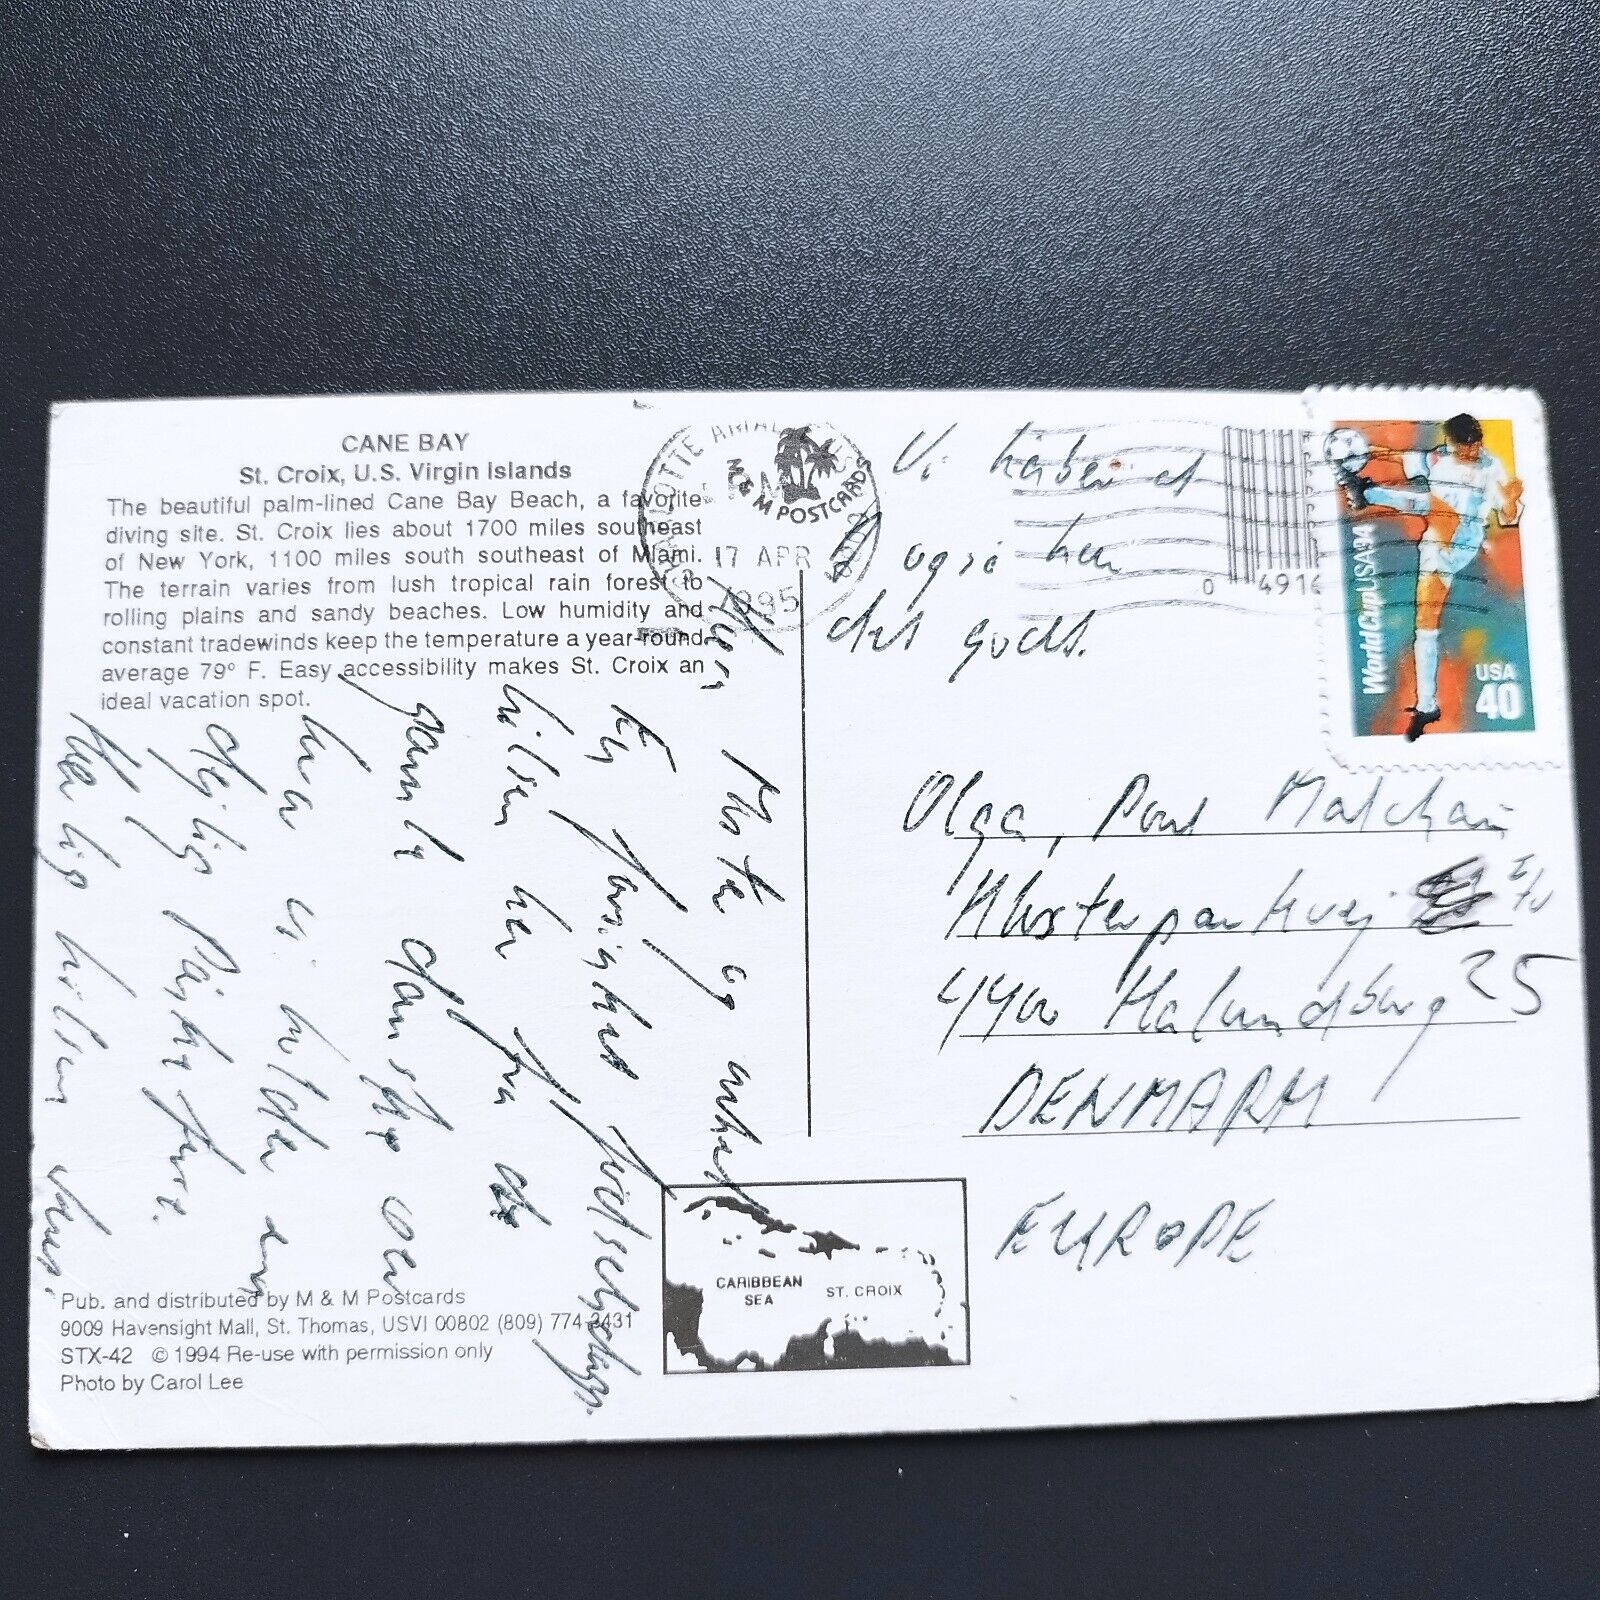 CANE BAY
St. Croix, U.S. Virgin Islands
The beautiful palm-lined Cane Bay Beach, a favorite
diving site. St. Croix lies about 1700 miles southeast
of New York, 1100 miles south southeast of Miami.
The terrain varies from lush tropical rain forest to
rolling plains and sandy beaches. Low humidity and
constant tradewinds keep the temperature a year-round
average 79° F. Easy accessibility makes St. Croix an
ideal vacation spot.
M & M POSTCARDS
17 APR
1995
Kære
Moster og onkel
En forsinket fødselsdags
hilsen her fra de
gamle danske øer
hvor vi holder en
dejlig Påske ferie.
Kærlig hilsen
Vi håber at
I også har
det godt.
0 4914
WorldCupUSA94
USA
40
Olga, Poul
Klosterparkvej
25
4400 Kalundborg
DENMARK
EUROPE
CARIBBEAN
SEA
ST. CROIX
Pub. and distributed by M & M Postcards
9009 Havensight Mall, St. Thomas, USVI 00802 (809) 774-3431
STX-42 © 1994 Re-use with permission only
Photo by Carol Lee